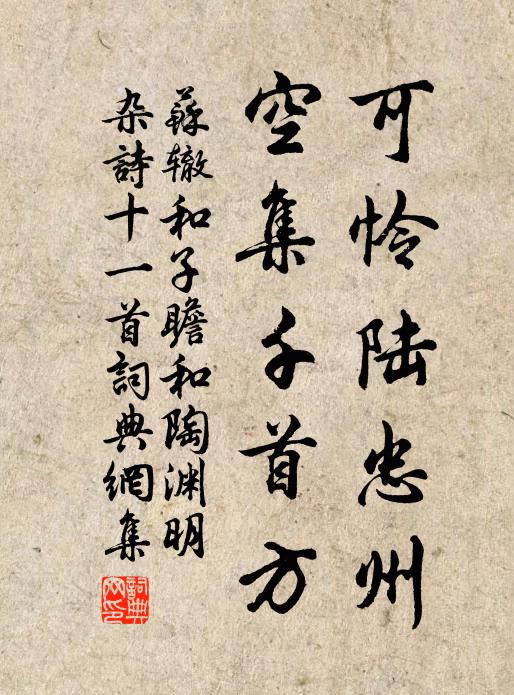 可怜陆忠州
空集千首方
蘇辙和子瞻和陶渊明
杂詩十一首詞典網集
詞典
网印